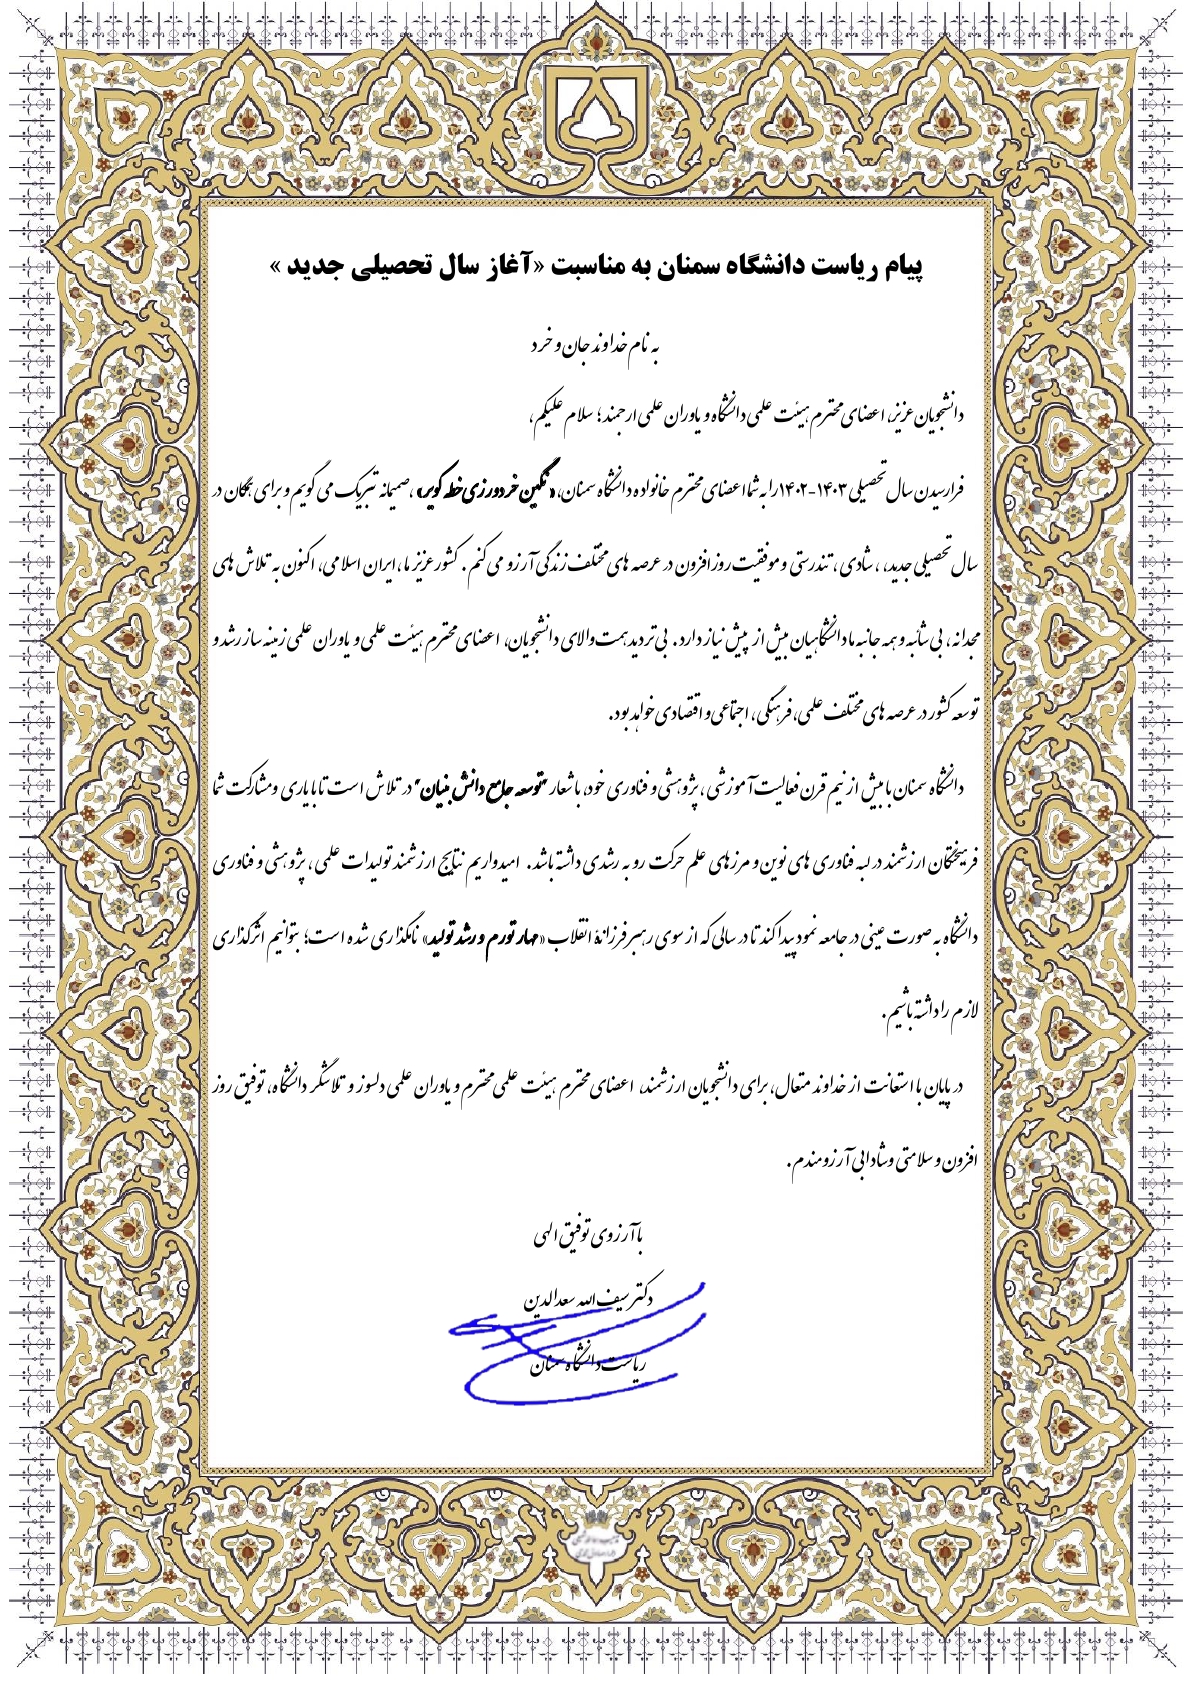 پیام ریاست دانشگاه سمنان به مناسبت «آغاز سال تحصیلی جدید »
به نام خداوند جان و خرد
دانشجویان عزیز، اعضای محترم هیئت علمی دانشگاه و یاوران علمی ارجمند؛ سلام علیکم،
فرارسیدن سال تحصیلی ۱۴۰۳-۱۴۰۲ را به شما اعضای محترم خانواده دانشگاه سمنان، «نگین خردورزی خطه کویر» ، صمیمانه تبریک می گویم و برای همگان در
سال تحصیلی جدید، ، شادی ، تندرستی و موفقیت روز افزون در عرصه های مختلف زندگی آرزو می کنم . کشور عزیز ما، ایران اسلامی، اکنون به تلاش های
مجدانه ، بی شائبه و همه جانبه ما دانشگاهیان بیش از پیش نیاز دارد . بی تردید همت والای دانشجویان، اعضای محترم هیئت علمی و یاوران علمی زمینه ساز رشد و
توسعه کشور در عرصه های مختلف علمی، فرهنگی ، اجتماعی و اقتصادی خواهد بود .
دانشگاه سمنان با بیش از نیم قرن فعالیت آموزشی ، پژوهشی و فناوری خود، با شعار "توسعه جامع دانش بنیان" در تلاش است تا با یاری و مشارکت شما
فرهیختگان ارزشمند در لبه فناوری های نوین و مرزهای علم حرکت رو به رشدی داشته باشد . امیدواریم نتایج ارزشمند تولیدات علمی ، پژوهشی و فناوری
دانشگاه به صورت عینی در جامعه نمود پیدا کند تا در سالی که از سوی رهبر فرزانۀ انقلاب «مهار تورم و رشد تولید» نامگذاری شده است؛ بتوانیم اثرگذاری
لازم را داشته باشیم .
در پایان با استعانت از خداوند متعال، برای دانشجویان ارزشمند، اعضای محترم هیئت علمی محترم و یاوران علمی دلسوز و تلاشگر دانشگاه، توفیق روز
افزون و سلامتی و شادابی آرزومندم .
با آرزوی توفیق الهی
دکتر سیف الله سعدالدین
ریاست دانشگاه سمنان